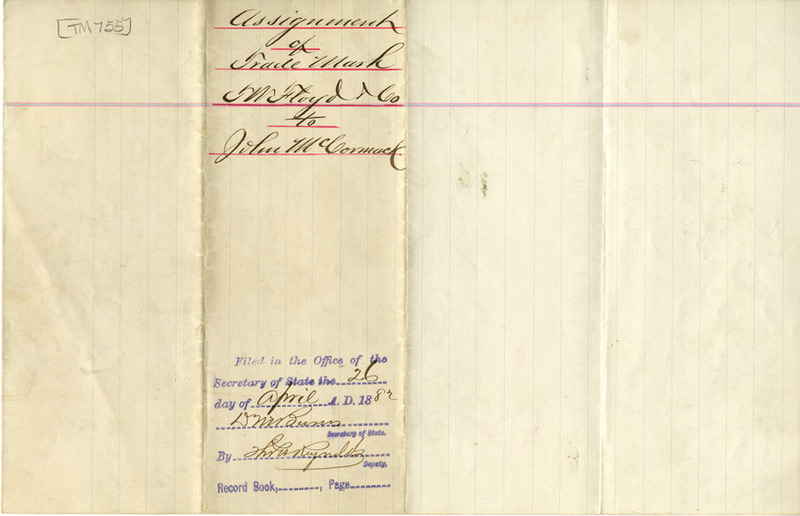 [TM 755]
Assignment
of
Trade Mark
Floyd & Co
to
John McCormack
Filed in the Office of the
Secretary of State the 26
day of April A. D. 1882
D M Burns
Secretary of State.
By Thos H Reynolds
Deputy,
Record Book, , Page